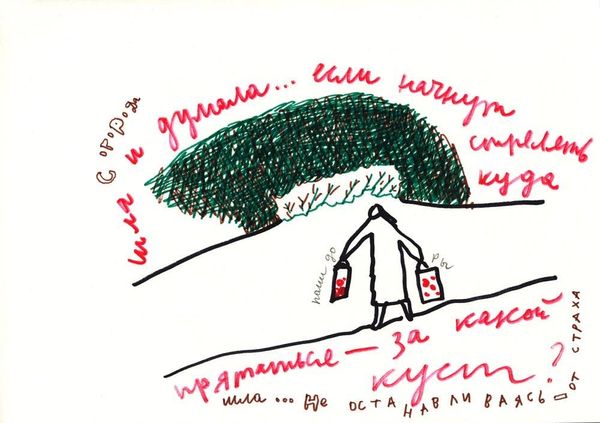 С огорода
шла и думала... если начнут
стрелять
куда
поми до
ры
прятаться — за какой
куст?
шла... Не останавливаясь от страха